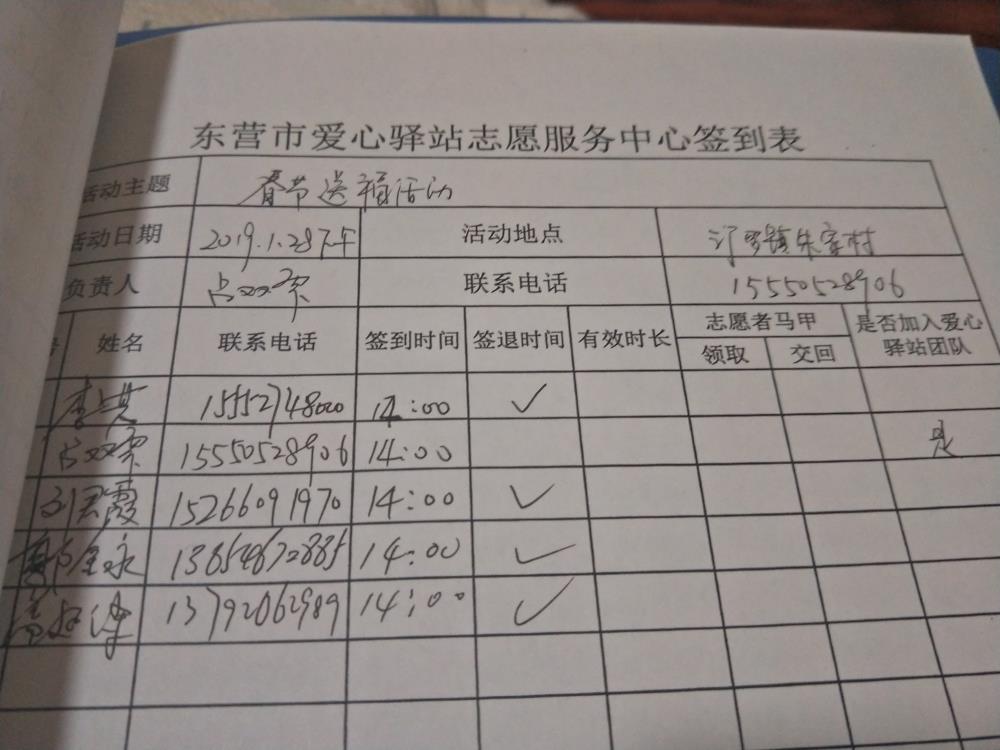 东营市爱心驿站志愿服务中心签到表
活动主题 春节送福活动
活动日期 2019.1.28下午 活动地点 汀罗镇朱家村
负责人 联系电话 15550528906
姓名 联系电话 签到时间 签退时间 有效时长 志愿者马甲 是否加入爱心
领取 交回 驿站团队
15552748000 14:00 ✓
15550528906 14:00 是
刘君霞 15266091970 14:00 ✓
13854672885 14:00 ✓
13792062989 14:00 ✓